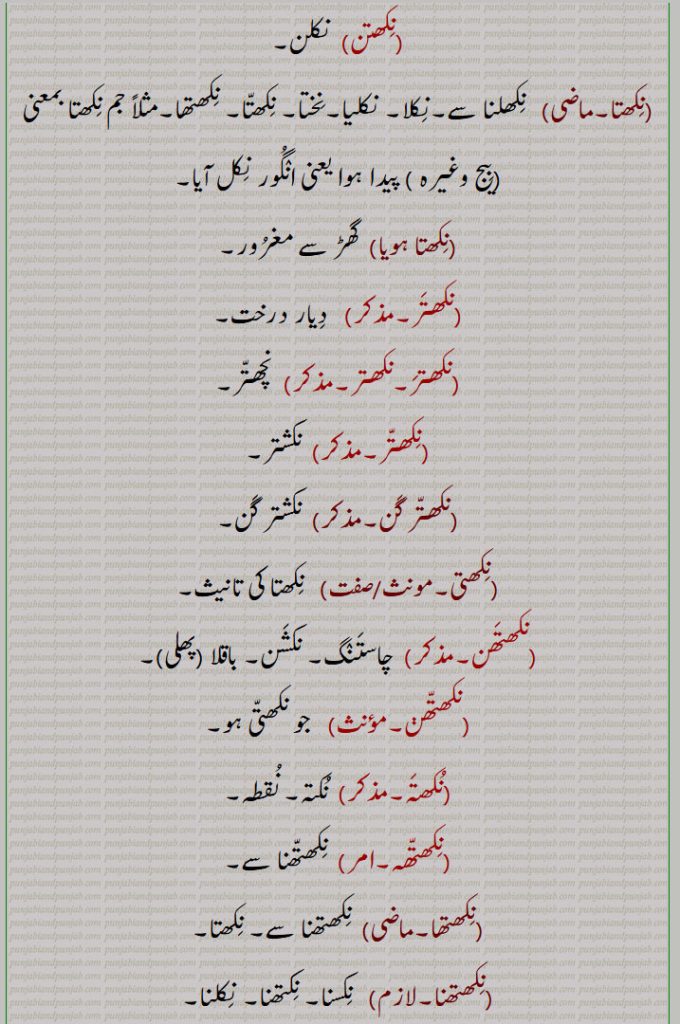 (نِکھتن) نکلن۔
(نِکھتا۔ماضی) نِکھلنا سے۔نِکلا۔ نکلیا۔نِختا۔ نِکھتّا۔ نِکھتھا۔مثلاً جم نِکھتا بمعنی
(بِیج وغیرہ) پیدا ہوا یعنی انگُور نِکل آیا۔
(نِکھتا ہویا) گھڑ سے مغرُور۔
(نکھتَر۔مذکر) دِیار درخت۔
(نکھترَ۔نکھتر۔مذکر) نچھتّر۔
(نِکھتّر۔مذکر) نکشتر۔
(نکھتّر گن۔مذکر) نکشتر گن۔
(نِکھتی۔مونث/صفت) نِکھتا کی تانیث۔
(نکھتھَن۔مذکر) چاستَنگ۔ نکشَن۔ باقلا (پھلی)۔
(نکھتّھن۔مؤنث) جو نکھتّی ہو۔
(نُکھتَہ۔مذکر) نُکتہ۔ نُقطہ۔
(نِکھتّھہ۔امر) نِکھتّھنا سے۔
(نِکھتھا۔ماضی) نِکھتھنا سے۔ نِکھتا۔
(نِکھتھنا۔لازم) نِکسنا۔ نِکتھنا۔ نِکلنا۔